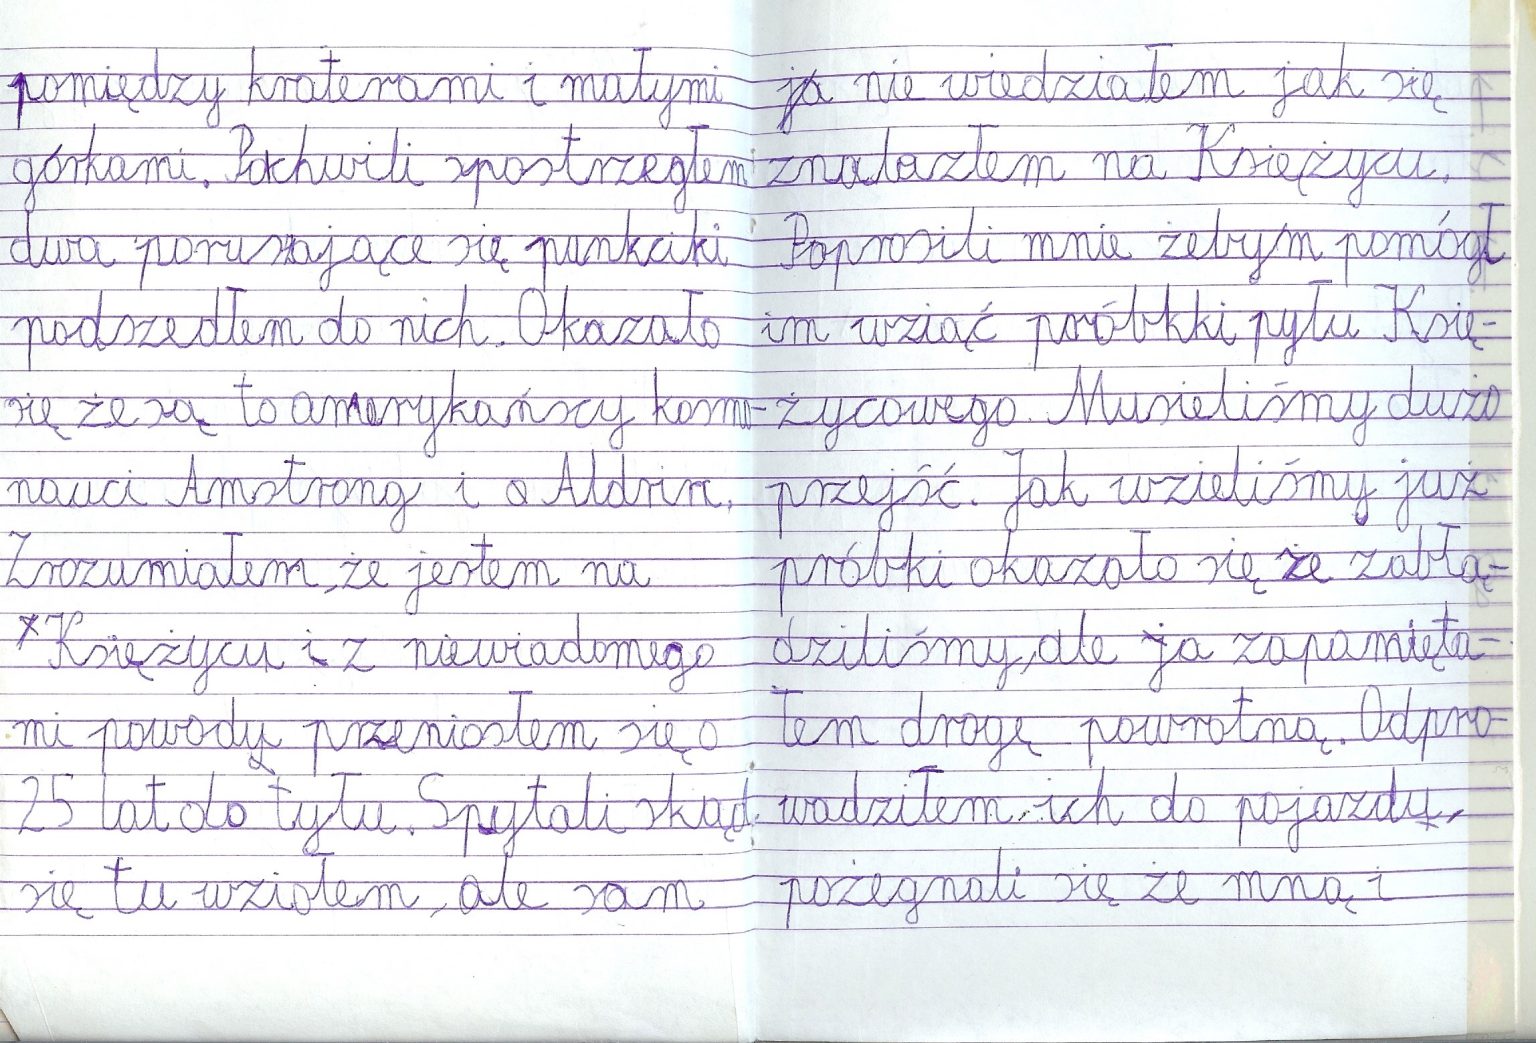 pomiędzy kraterami i małymi
górkami. Pochwili spostrzegłem
dwa poruszające się punkciki
podszedłem do nich. Okazało
się że są to amerykańscy kosmo-
nauci Amstrong i a Aldrin.
Zrozumiałem, że jestem na
*Księżycu i z niewiadomego
mi powody przeniosłem się o
25 lat do tyłu. Spytali skąd
się tu wziołem, ale sam
ja nie wiedziałem jak się
znalazłem na Księżycu.
Poprosili mnie żebym pomógł
im wziąć próbkki pyłu Księ-
życowego. Musieliśmy dużo
przejść. Jak wzieliśmy już
próbki okazało się że zabłą-
dziliśmy, ale ja zapamięta-
łem drogę powrotną. Odpro-
wadziłem ich do pojazdy,
pożegnali się że mną i